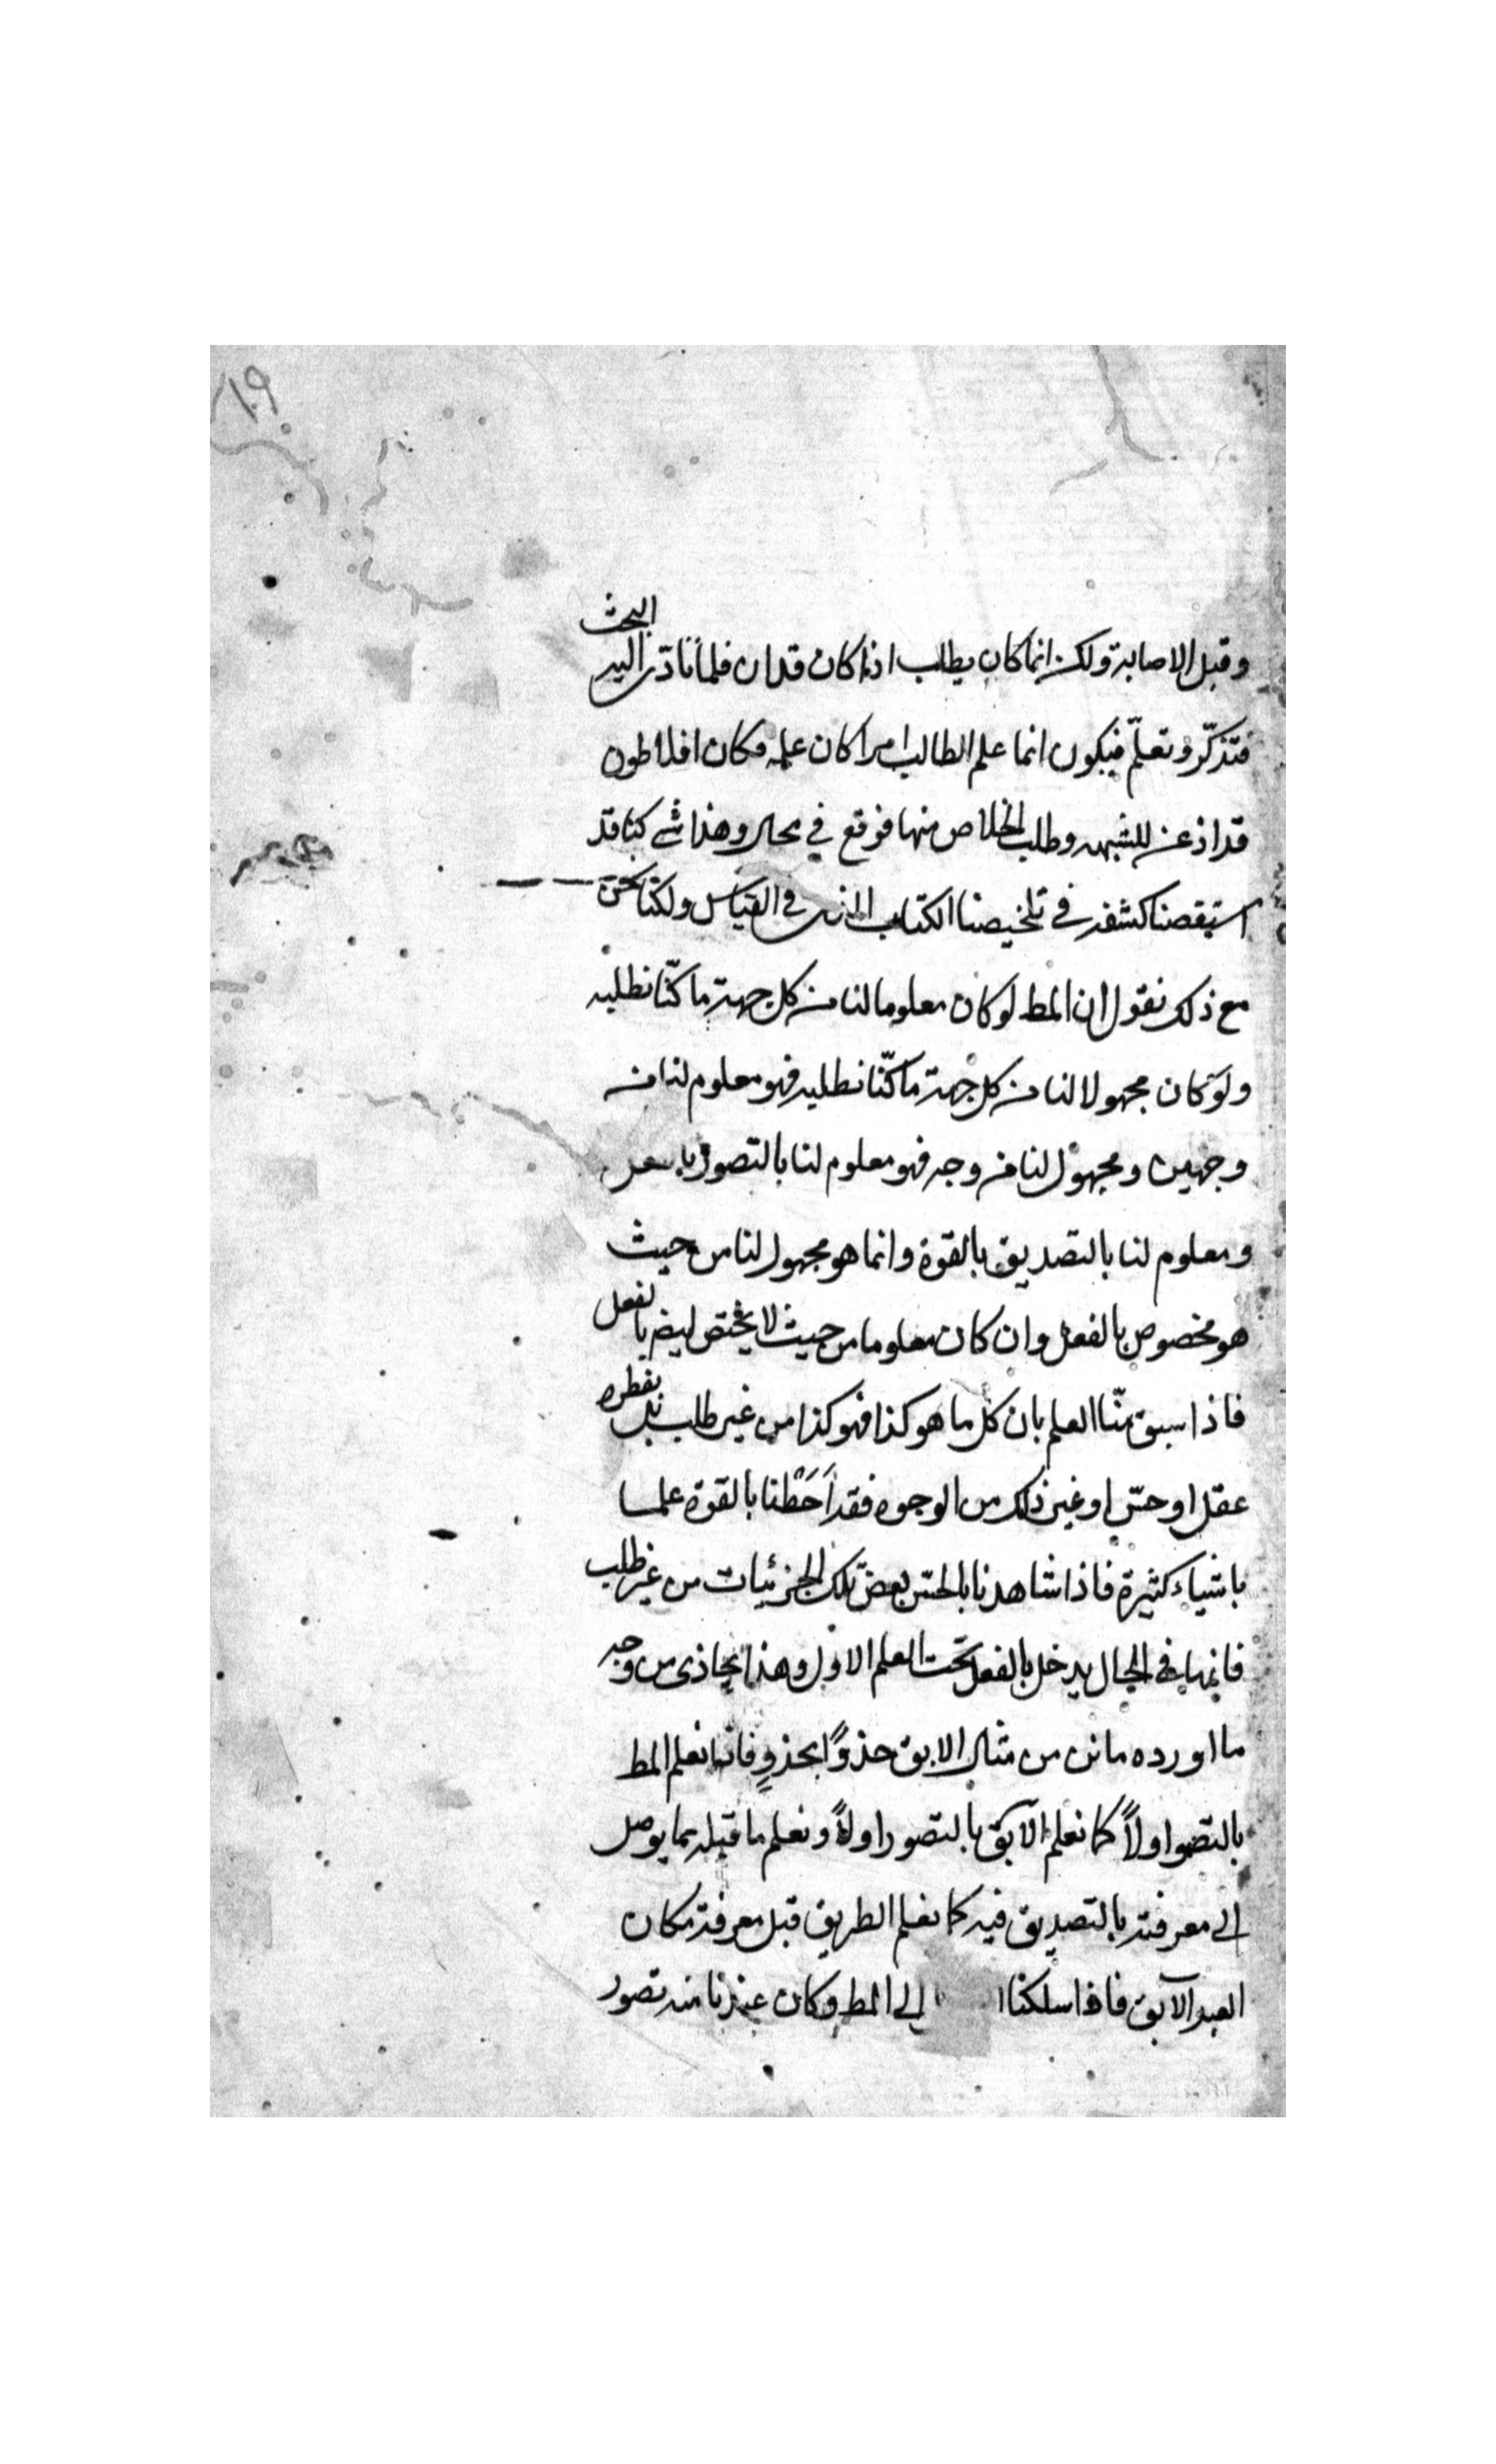 ١٠٩
وقبل الاصابة ولكن انما كان يطلب اذا كان قد ان فلما تادى اليه البحث
فتذكّر وتعلّم فيكون انما علم الطالب امرا كان علمه فكان افلاطون
قد اذعن للشبهه وطلب الخلاص منها فوقع في محال وهذا شى كنا قد
استقصنا كشفه فى تلخيصنا الكتاب الذى فى القياس ولكنا نحن
مع ذلك نقول ان المط لو كان معلوما لنا من كل جهة ما كنّا نطلبه
ولو كان مجهولا لنا من كل جهة ما كنّا نطلبه فهو معلوم لنا من
وجهين ومجهول لنا من وجه فهو معلوم لنا بالتصور بالفعل
ومعلوم لنا بالتصديق بالقوة وانما هو مجهول لنا من حيث
هو مخصوص بالفعل وان كان معلوما من حيث لا يختص ايضا بالفعل
فاذا سبق منّا العلم بان كل ما هو كذا فهو كذا من غير طلب بل بفطرة
عقل او حسّ او غير ذلك من الوجوه فقد اَحَطْنا بالقوة علما
باشياء كثيرة فاذا شاهدنا بالحس بعض تلك الجزئيات من غير طلب
فانها فى الحال يدخل بالفعل تحت العلم الاول وهذا يحاذى من وجه
ما اورده مانن من مثال الابق حذوًا بحذوٍ فانا نعلم المط
بالتصور اولاً كما نعلم الآبق بالتصور اولاً ونعلم ما قبله مما يوصل
الى معرفته بالتصديق فيه كما نعلم الطريق قبل معرفة مكان
العبد الآبق فاذا سلكنا الى المط وكان عندنا منه تصور